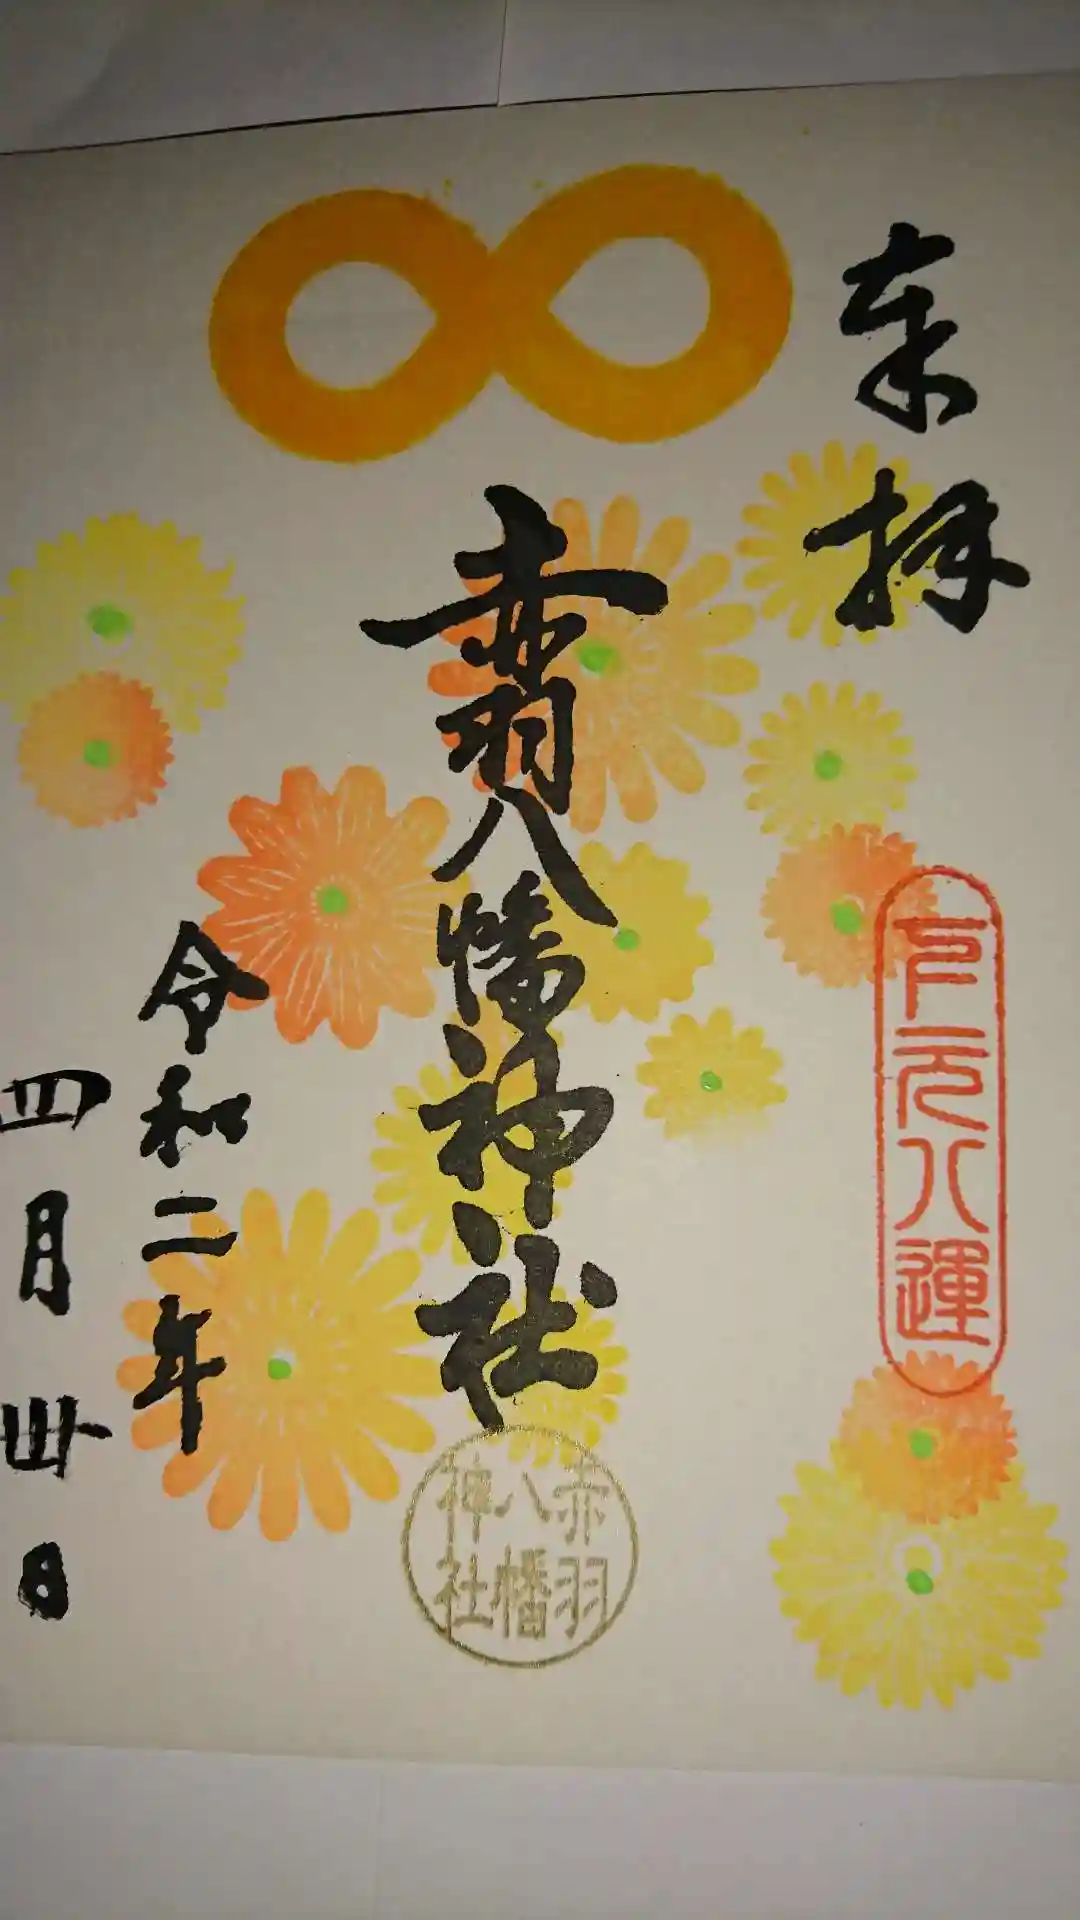 奉拝
开元八運
赤羽八幡神社
赤羽
八幡
神社
令和二年
四月卅日